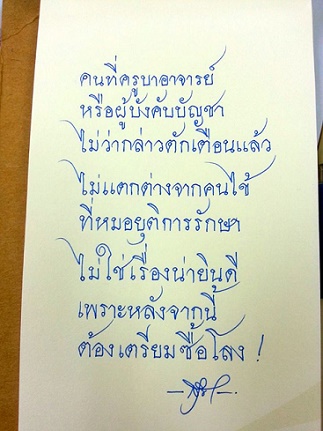 คนที่ครูบาอาจารย์
หรือผู้บังคับบัญชา
ไม่ว่ากล่าวตักเตือนแล้ว
ไม่แตกต่างจากคนไข้
ที่หมอยุติการรักษา
ไม่ใช่เรื่องน่ายินดี
เพราะหลังจากนี้
ต้องเตรียมซื้อโลง !